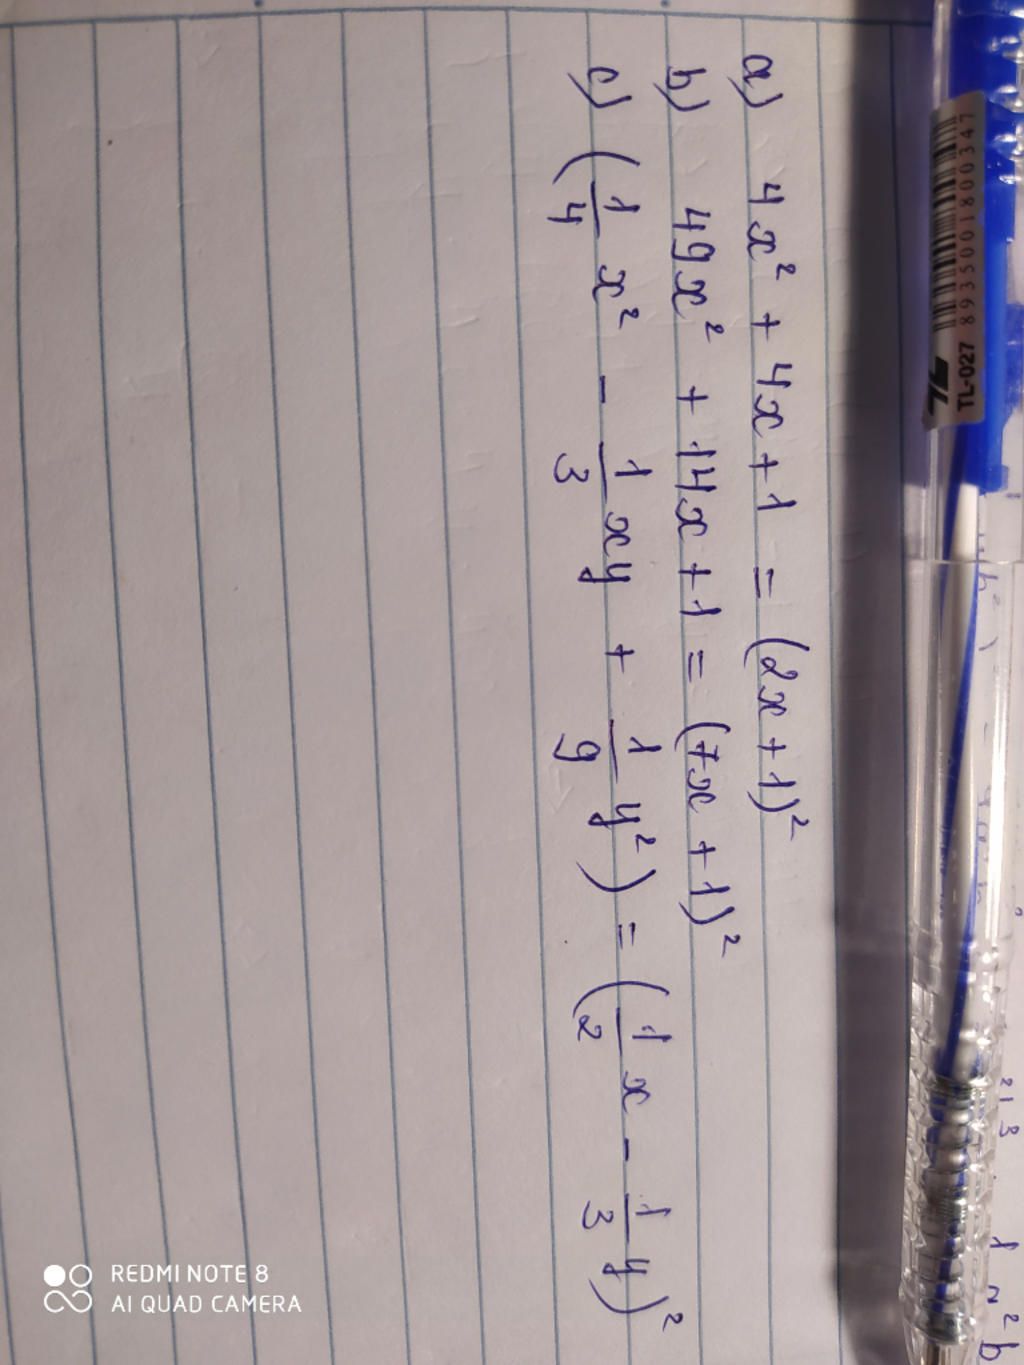 a) 4x² + 4x + 1 = (2x + 1)²
b) 49x² + 14x + 1 = (7x + 1)²
c) (1/4 x² - 1/3 xy + 1/9 y²) = (1/2 x - 1/3 y)²
TL-027 8935001800347
TL
REDMI NOTE 8
AI QUAD CAMERA